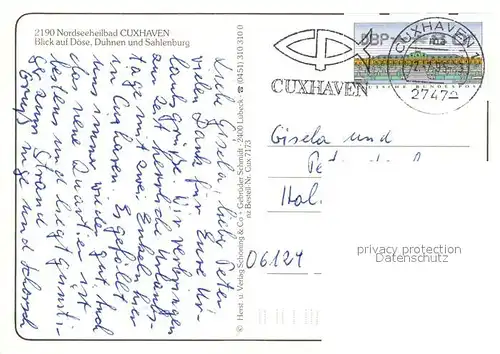 2190 Nordseeheilbad CUXHAVEN
Blick auf Döse, Duhnen und Sahlenburg
Liebe Gisela, lieber Peter
vielen Dank für Eure Ur-
laubsgrüße. Wir verbringen
zur Zeit herrliche Urlaubs-
tage mit zwei Enkelkindern
in Cuxhaven. Es gefällt
uns immer wieder gut, und
das neue Quartier ist
bestens und liegt günstig
zum Strand
Gruß
und
© Herst. u. Verlag Schöning & Co + Gebrüder Schmidt · 2400 Lübeck · ☎ (0451) 310 310 0
nz Bestell-Nr. Cux 7173
CUXHAVEN
DBP
CUXHAVEN 1
27472
Gisela und
Pet
Hol.
06124
privacy protection
Datenschutz